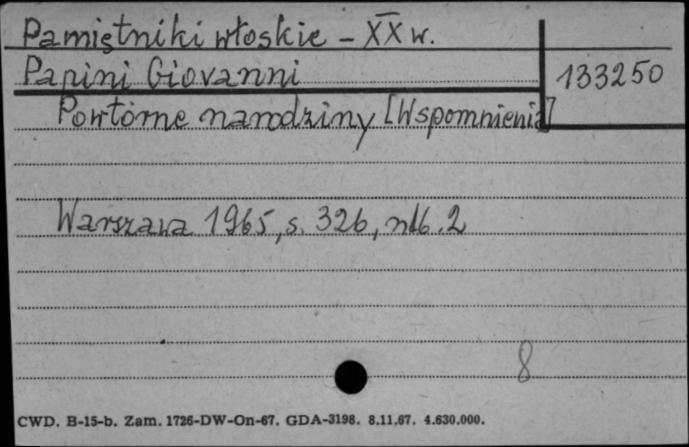 Pamiętniki włoskie - XX w.
Papini Giovanni
133250
Powtórne narodziny [Wspomnienia]
Warszawa 1965, s. 326, nlb. 2
8
CWD. B-15-b. Zam. 1726-DW-On-67. GDA-3198. 8.11.67. 4.630.000.